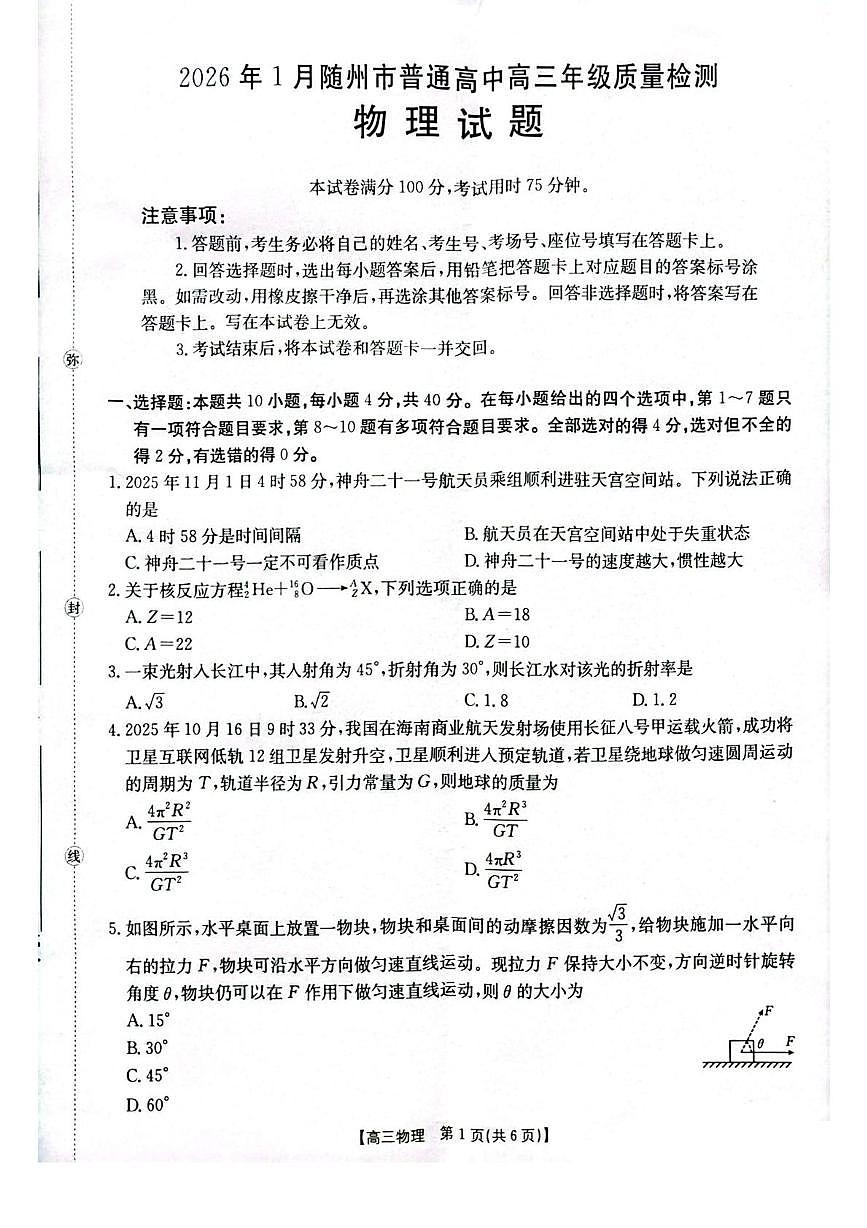 2026 年 1 月随州市普通高中高三年级质量检测
物 理 试 题
本试卷满分 100 分,考试用时 75 分钟。
注意事项:
1. 答题前,考生务必将自己的姓名、考生号、考场号、座位号填写在答题卡上。
2. 回答选择题时,选出每小题答案后,用铅笔把答题卡上对应题目的答案标号涂
黑。如需改动,用橡皮擦干净后,再选涂其他答案标号。回答非选择题时,将答案写在
答题卡上。写在本试卷上无效。
3. 考试结束后,将本试卷和答题卡一并交回。
弥
一、选择题:本题共 10 小题,每小题 4 分,共 40 分。在每小题给出的四个选项中,第 1~7 题只
有一项符合题目要求,第 8~10 题有多项符合题目要求。全部选对的得 4 分,选对但不全的
得 2 分,有选错的得 0 分。
1. 2025 年 11 月 1 日 4 时 58 分,神舟二十一号航天员乘组顺利进驻天宫空间站。下列说法正确
的是
A. 4 时 58 分是时间间隔 B. 航天员在天宫空间站中处于失重状态
C. 神舟二十一号一定不可看作质点 D. 神舟二十一号的速度越大,惯性越大
2. 关于核反应方程⁴₂He+¹⁶₈O⟶ᴬ_ZX,下列选项正确的是
封
A. Z=12 B. A=18
C. A=22 D. Z=10
3. 一束光射入长江中,其入射角为 45°,折射角为 30°,则长江水对该光的折射率是
A. √3 B. √2 C. 1.8 D. 1.2
4. 2025 年 10 月 16 日 9 时 33 分,我国在海南商业航天发射场使用长征八号甲运载火箭,成功将
卫星互联网低轨 12 组卫星发射升空,卫星顺利进入预定轨道,若卫星绕地球做匀速圆周运动
的周期为 T,轨道半径为 R,引力常量为 G,则地球的质量为
A. 4π²R²/GT² B. 4π²R³/GT
线
C. 4π²R³/GT² D. 4πR³/GT²
5. 如图所示,水平桌面上放置一物块,物块和桌面间的动摩擦因数为√3/3,给物块施加一水平向
右的拉力 F,物块可沿水平方向做匀速直线运动。现拉力 F 保持大小不变,方向逆时针旋转
角度 θ,物块仍可以在 F 作用下做匀速直线运动,则 θ 的大小为
A. 15°
B. 30°
C. 45°
D. 60°
F
θ F
【高三物理 第 1 页(共 6 页)】